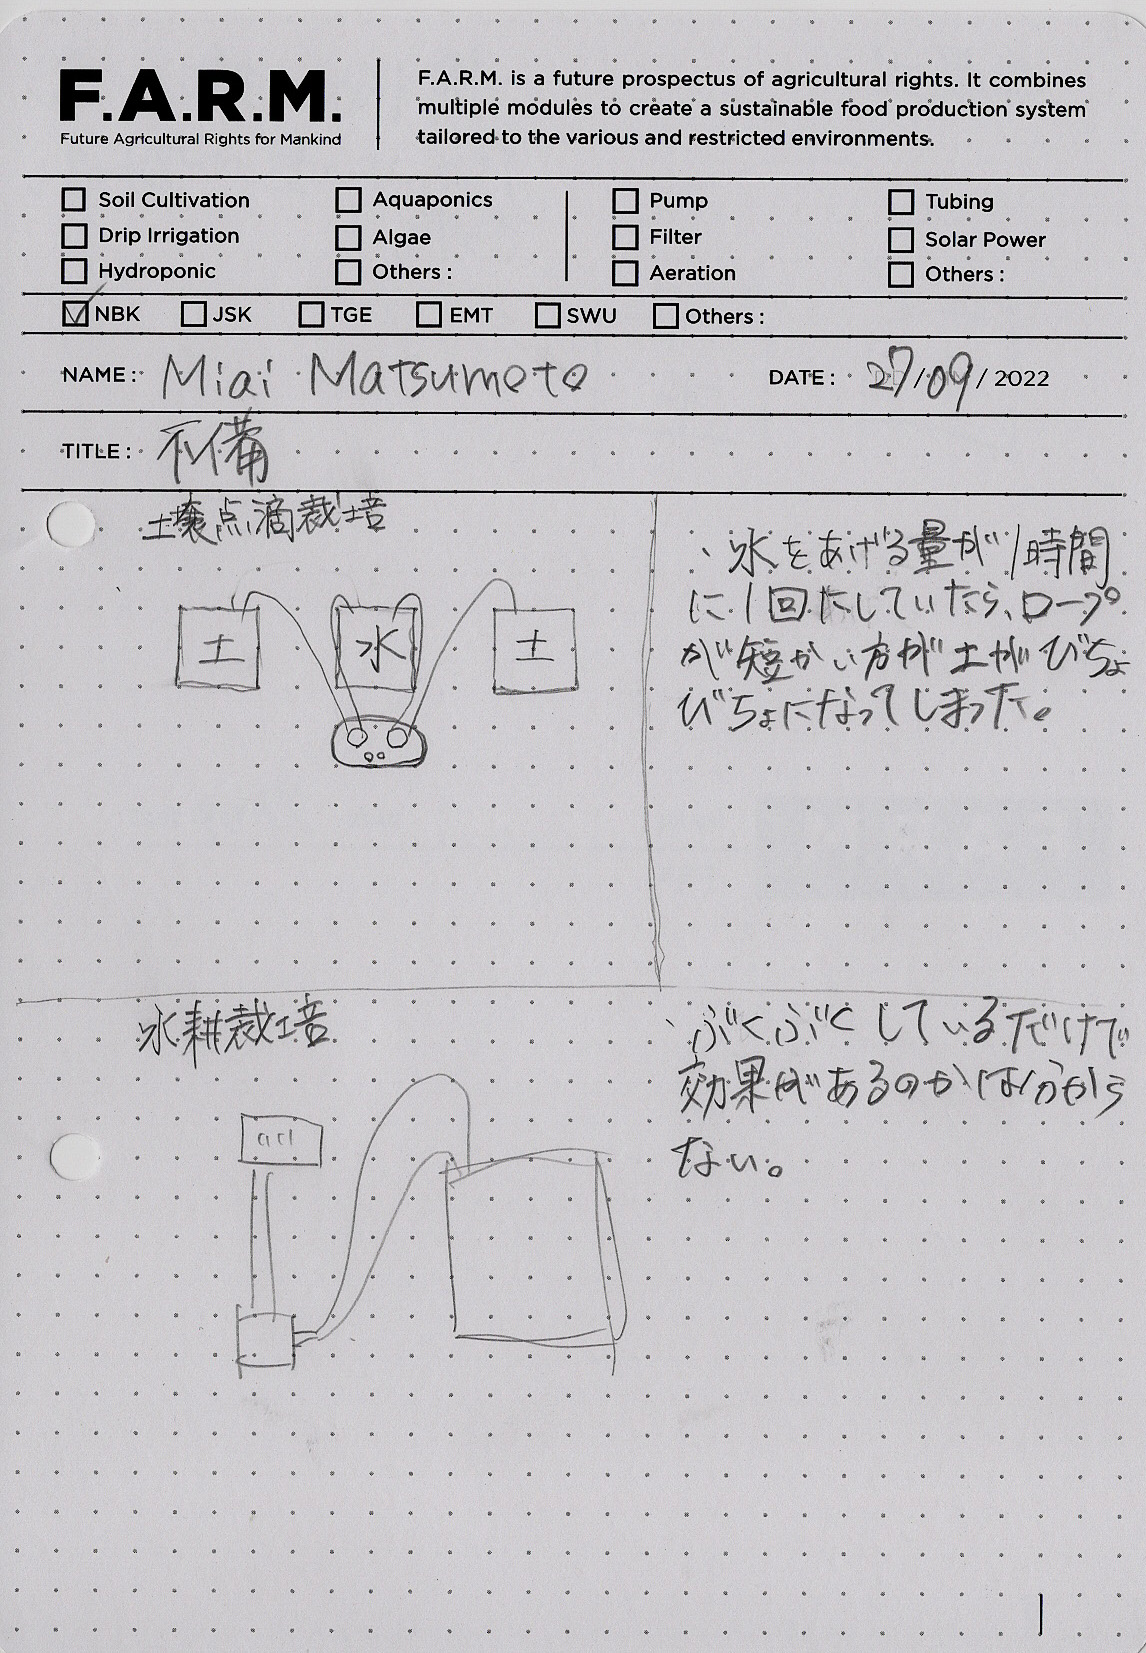 F.A.R.M.
Future Agricultural Rights for Mankind
F.A.R.M. is a future prospectus of agricultural rights. It combines
multiple modules to create a sustainable food production system
tailored to the various and restricted environments.
Soil Cultivation
Drip Irrigation
Hydroponic
Aquaponics
Algae
Others :
Pump
Filter
Aeration
Tubing
Solar Power
Others :
NBK JSK TGE EMT SWU Others :
NAME : Miai Matsumoto DATE : 27/09/2022
TITLE : 不備
土壌点滴裁培
土 水 土
、水をあげる量が1時間
に1回にしていたら、ロープ
が短かい方が土がびちょ
びちょになってしまった。
水耕裁培
、ぶくぶくしているだけで
効果があるのかは分から
ない。
1